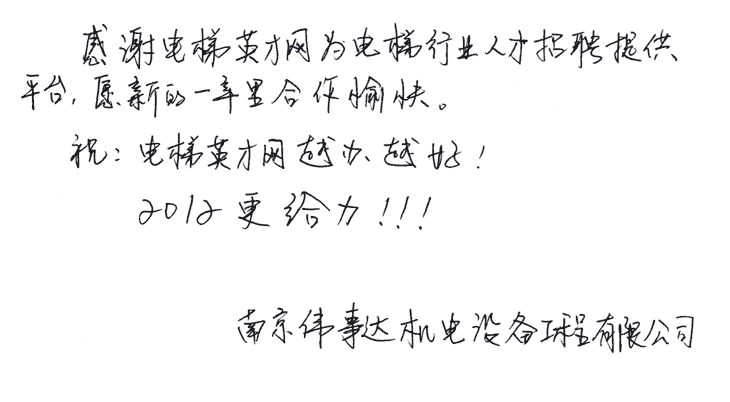 感谢电梯英才网为电梯行业人才招聘提供
平台,愿新的一年里合作愉快。
祝:电梯英才网越办越好!
2012更给力!!!
南京伟事达机电设备工程有限公司